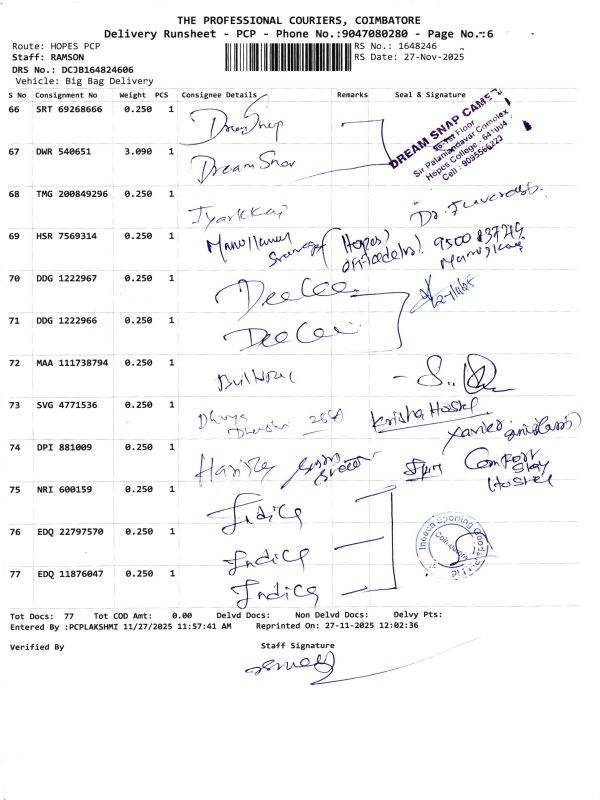 THE PROFESSIONAL COURIERS, COIMBATORE
Delivery Runsheet - PCP - Phone No.:9047080280 - Page No.:6
Route: HOPES PCP RS No.: 1648246
Staff: RAMSON RS Date: 27-Nov-2025
DRS No.: DCJB164824606
Vehicle: Big Bag Delivery
S No Consignment No Weight PCS Consignee Details Remarks Seal & Signature
66 SRT 69268666 0.250 1 Dream Snap
DREAM SNAP
Floor
Hopes College - 641004
Cell : 9095566223
67 DWR 540651 3.090 1 Dream Snap
68 TMG 200849296 0.250 1
69 HSR 7569314 0.250 1 (Hopes)
70 DDG 1222967 0.250 1 DeeCee
71 DDG 1222966 0.250 1 DeeCee
72 MAA 111738794 0.250 1
73 SVG 4771536 0.250 1 Dhivya Krisha Hostel
74 DPI 881009 0.250 1 Comfort Stay Hostel
75 NRI 600159 0.250 1 Indica
76 EDQ 22797570 0.250 1 Indica
77 EDQ 11876047 0.250 1 Indica
Tot Docs: 77 Tot COD Amt: 0.00 Delvd Docs: Non Delvd Docs: Delvy Pts:
Entered By :PCPLAKSHMI 11/27/2025 11:57:41 AM Reprinted On: 27-11-2025 12:02:36
Verified By Staff Signature